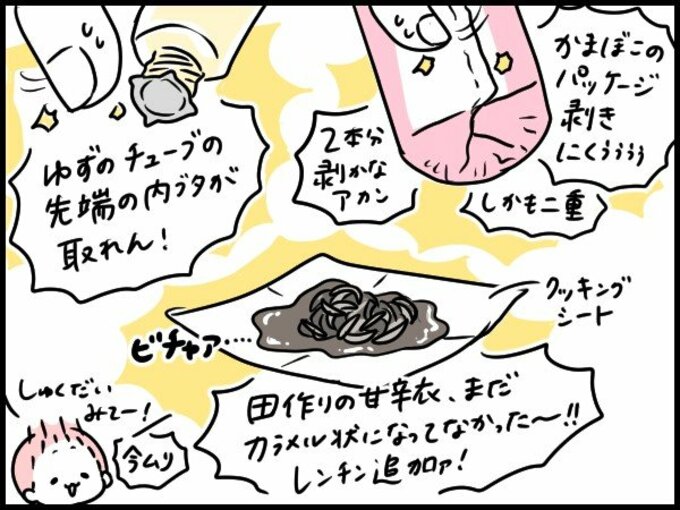 かまぼこの
パッケージ
剥き
にくぅぅぅぅ
2本分
剥かな
アカン
しかも二重
ゆずのチューブの
先端の内ブタが
取れん！
クッキング
シート
ビチャァ……
田作りの甘辛衣、まだ
カラメル状になってなかった〜!!
レンチン追加ァ！
しゅくだい
みてー！
今ムリ